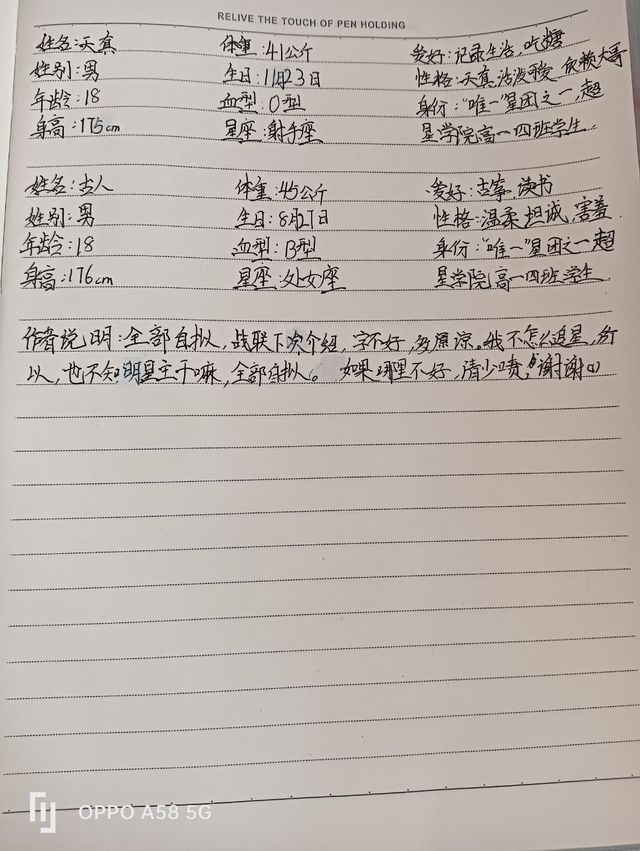 RELIVE THE TOUCH OF PEN HOLDING
姓名:天真 体重:41公斤 爱好:记录生活,吃糖
姓别:男 生日:11月23日 性格:天真活泼可爱 依赖大哥
年龄:18 血型:O型 身份:"唯一"星团之一,超
身高:175cm 星座:射手座 星学院高一四班学生
姓名:古人 体重:45公斤 爱好:古筝 读书
姓别:男 生日:8月27日 性格:温柔 坦诚 害羞
年龄:18 血型:B型 身份:"唯一"星团之一超
身高:176cm 星座:处女座 星学院高一四班学生
作者说明:全部自拟,战联下次介绍,字不好,多原谅。我不怎么追星,所
以,也不知明星主干嘛,全部自拟。如果哪里不好,清少喷,谢谢
OPPO A58 5G